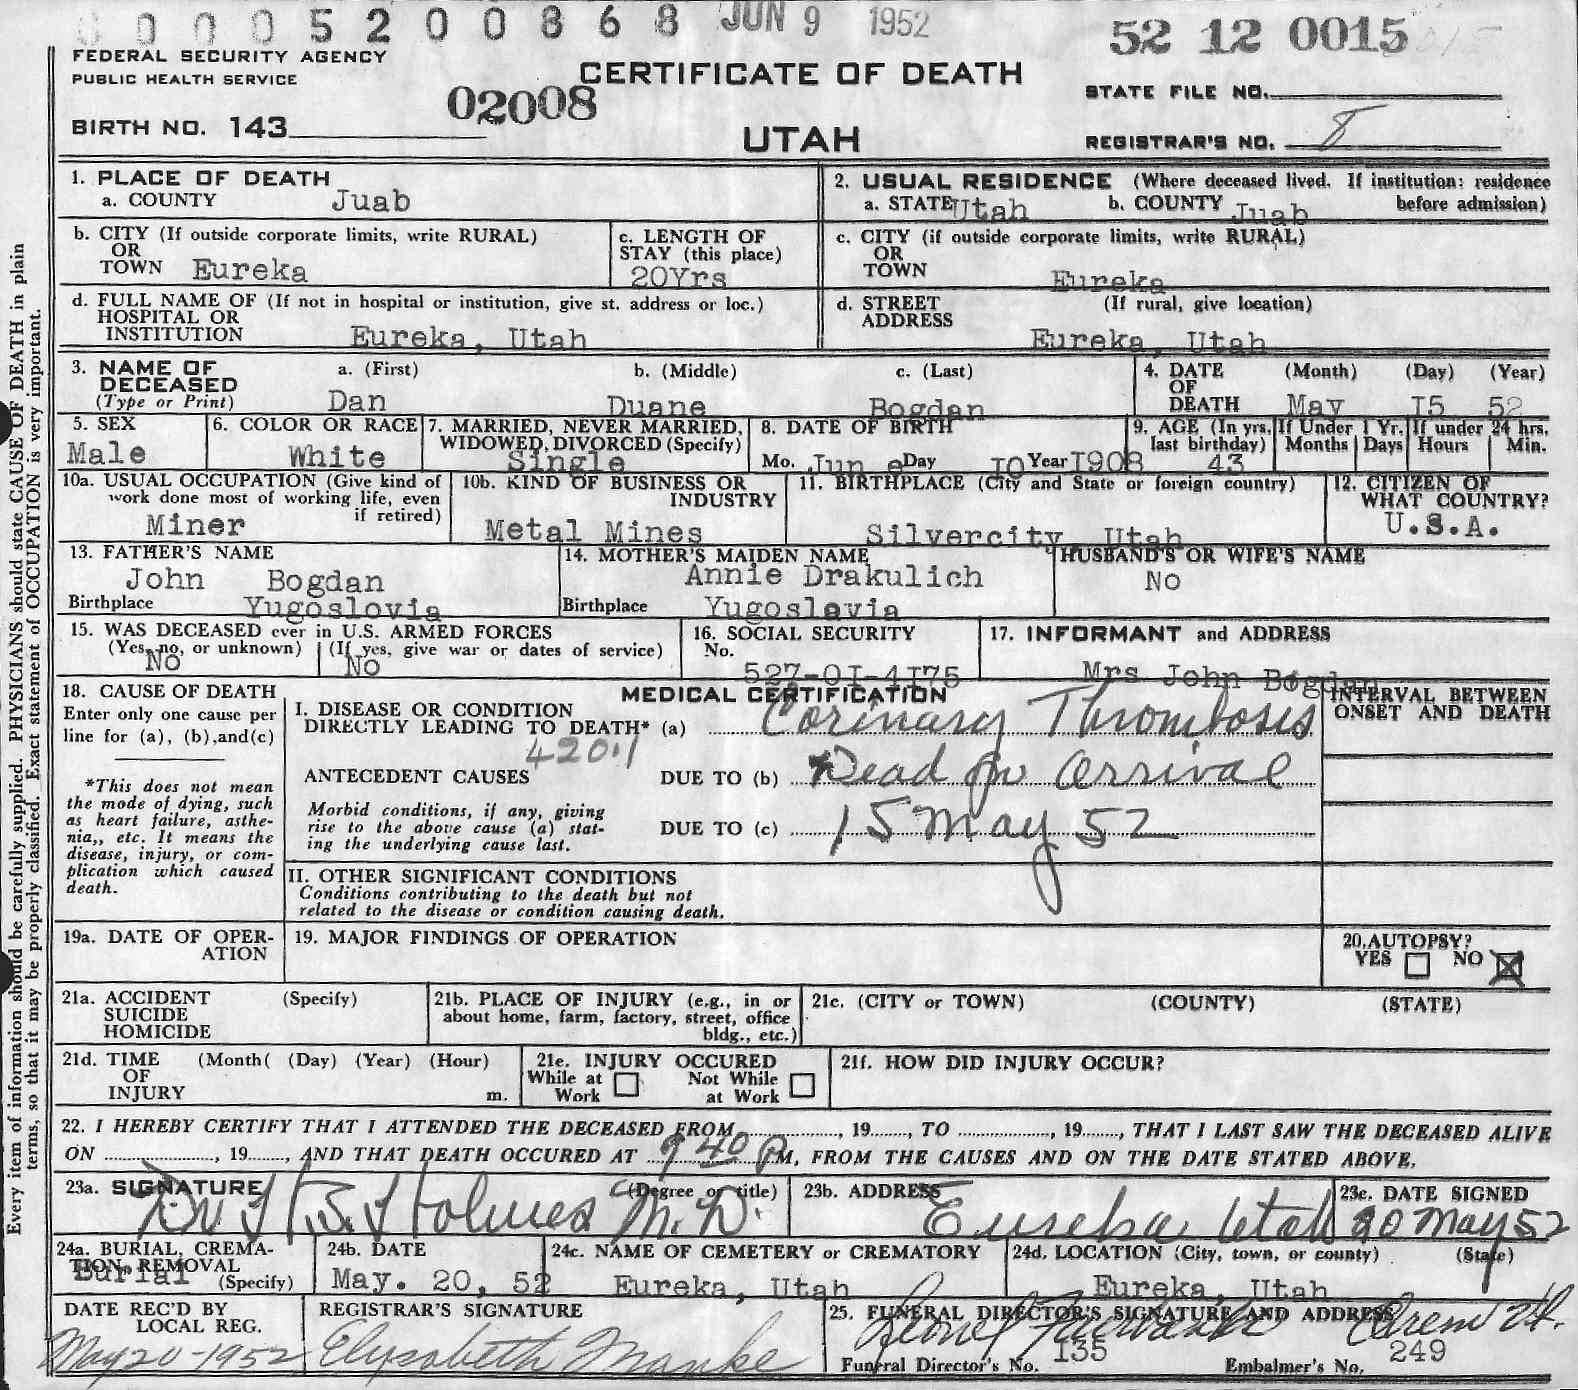 0 0 0 5 2 0 0 8 6 8 JUN 9 1952
52 12 0015
FEDERAL SECURITY AGENCY
PUBLIC HEALTH SERVICE
CERTIFICATE OF DEATH
STATE FILE NO.
02008
BIRTH NO. 143
UTAH
REGISTRAR'S NO. 8
1. PLACE OF DEATH
a. COUNTY Juab
2. USUAL RESIDENCE (Where deceased lived. If institution: residence before admission)
a. STATE Utah b. COUNTY Juab
b. CITY (If outside corporate limits, write RURAL)
OR
TOWN Eureka
c. LENGTH OF
STAY (this place)
20Yrs
c. CITY (if outside corporate limits, write RURAL)
OR
TOWN Eureka
d. FULL NAME OF (If not in hospital or institution, give st. address or loc.)
HOSPITAL OR
INSTITUTION Eureka, Utah
d. STREET (If rural, give location)
ADDRESS
Eureka, Utah
3. NAME OF
DECEASED
(Type or Print)
a. (First) b. (Middle) c. (Last)
Dan Duane Bogdan
4. DATE (Month) (Day) (Year)
OF
DEATH May I5 52
5. SEX
Male
6. COLOR OR RACE
White
7. MARRIED, NEVER MARRIED,
WIDOWED, DIVORCED (Specify)
Single
8. DATE OF BIRTH
Mo. Jun e Day I0 Year I908
9. AGE (In yrs.
last birthday)
43
If Under 1 Yr.
Months Days
If under 24 hrs.
Hours Min.
10a. USUAL OCCUPATION (Give kind of
work done most of working life, even
if retired)
Miner
10b. KIND OF BUSINESS OR
INDUSTRY
Metal Mines
11. BIRTHPLACE (City and State or foreign country)
Silvercity Utah
12. CITIZEN OF
WHAT COUNTRY?
U.S.A.
13. FATHER'S NAME
John Bogdan
Birthplace Yugoslovia
14. MOTHER'S MAIDEN NAME
Annie Drakulich
Birthplace Yugoslavia
HUSBAND'S OR WIFE'S NAME
No
15. WAS DECEASED ever in U.S. ARMED FORCES
(Yes, no, or unknown) (If yes, give war or dates of service)
No No
16. SOCIAL SECURITY
No.
527-0I-4I75
17. INFORMANT and ADDRESS
Mrs John Bogdan
18. CAUSE OF DEATH
Enter only one cause per
line for (a), (b), and (c)
*This does not mean
the mode of dying, such
as heart failure, asthe-
nia,, etc. It means the
disease, injury, or com-
plication which caused
death.
MEDICAL CERTIFICATION
I. DISEASE OR CONDITION
DIRECTLY LEADING TO DEATH* (a) Corinary Thrombosis
420.1
ANTECEDENT CAUSES DUE TO (b) Dead on arrival
Morbid conditions, if any, giving
rise to the above cause (a) stat-
ing the underlying cause last.
DUE TO (c) 15 May 52
INTERVAL BETWEEN
ONSET AND DEATH
II. OTHER SIGNIFICANT CONDITIONS
Conditions contributing to the death but not
related to the disease or condition causing death.
19a. DATE OF OPER-
ATION
19. MAJOR FINDINGS OF OPERATION
20. AUTOPSY?
YES NO
21a. ACCIDENT (Specify)
SUICIDE
HOMICIDE
21b. PLACE OF INJURY (e.g., in or
about home, farm, factory, street, office
bldg., etc.)
21c. (CITY or TOWN) (COUNTY) (STATE)
21d. TIME (Month( (Day) (Year) (Hour)
OF
INJURY m.
21e. INJURY OCCURED
While at Work Not While at Work
21f. HOW DID INJURY OCCUR?
22. I HEREBY CERTIFY THAT I ATTENDED THE DECEASED FROM ............, 19......., TO ............, 19......., THAT I LAST SAW THE DECEASED ALIVE
ON ............, 19......., AND THAT DEATH OCCURED AT 9 40 P M, FROM THE CAUSES AND ON THE DATE STATED ABOVE.
23a. SIGNATURE (Degree or title)
Dr. Holmes M.D.
23b. ADDRESS
Eureka Utah
23c. DATE SIGNED
20 May 52
24a. BURIAL, CREMA-
TION, REMOVAL
(Specify)
Burial
24b. DATE
May. 20, 52
24c. NAME OF CEMETERY or CREMATORY
Eureka, Utah
24d. LOCATION (City, town, or county) (State)
Eureka, Utah
DATE REC'D BY
LOCAL REG.
May 20-1952
REGISTRAR'S SIGNATURE
Elizabeth
25. FUNERAL DIRECTOR'S SIGNATURE AND ADDRESS
Orem Ut.
Funeral Director's No. 135 Embalmer's No. 249
Every item of information should be carefully supplied. PHYSICIANS should state CAUSE OF DEATH in plain
terms, so that it may be properly classified. Exact statement of OCCUPATION is very important.